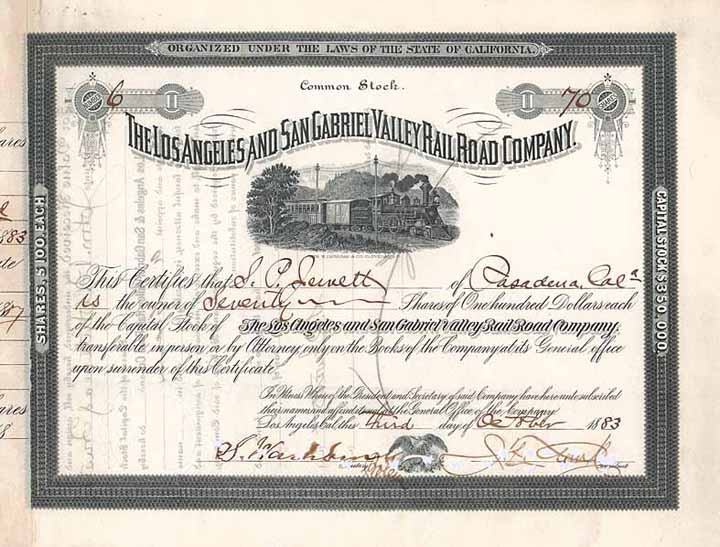 ORGANIZED UNDER THE LAWS OF THE STATE OF CALIFORNIA.
Common Stock.
6
70
THE LOS ANGELES AND SAN GABRIEL VALLEY RAIL ROAD COMPANY.
SHARES, $100 EACH
CAPITAL STOCK $350,000.
This Certifies that S. P. Jewett of Pasadena, Cala
is the owner of Seventy Shares of One hundred Dollars each
of the Capital Stock of The Los Angeles and San Gabriel Valley Rail Road Company,
transferable in person or by Attorney only on the Books of the Company at its General office
upon surrender of this Certificate.
In Witness Whereof the President and Secretary of said Company have hereunto subscribed
their names and affixed the General Office of the Company
Los Angeles Cal. this third day of October 1883